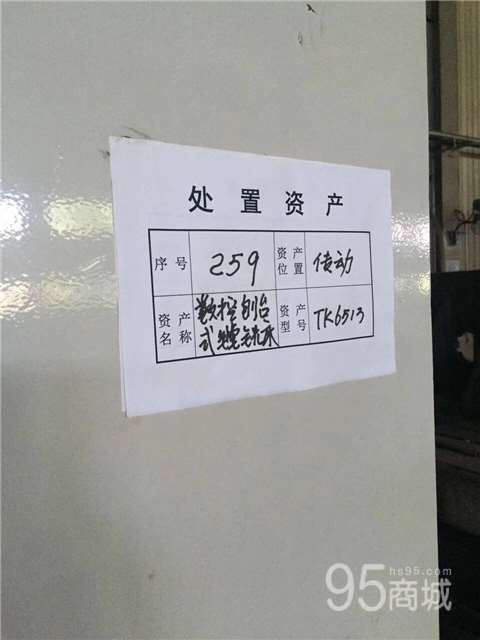 处置资产
序号 259 资产位置 传动
资产名称 数控刨台式镗铣床 资产型号 TK6513
hs95.com
95商城